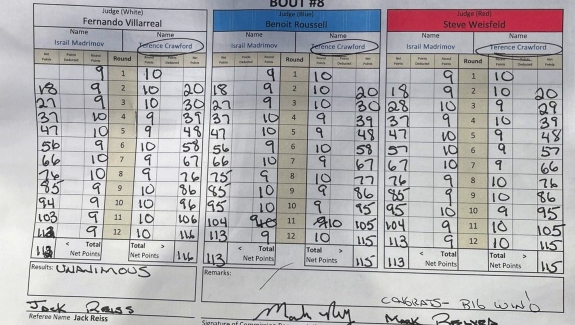 BOUT #8
Judge (White) Judge (Blue) Judge (Red)
Fernando Villarreal Benoit Roussell Steve Weisfeld
Name Name Name Name Name Name
Israil Madrimov Terence Crawford Israil Madrimov Terence Crawford Israil Madrimov Terence Crawford
Round Round Round
9 1 10 9 1 10 9 1 10
18 9 2 10 20 18 9 2 10 20 18 9 2 10 20
27 9 3 10 30 27 9 3 10 30 28 10 3 9 29
37 10 4 9 39 37 10 4 9 39 37 9 4 10 39
47 10 5 9 48 47 10 5 9 48 47 10 5 9 48
56 9 6 10 58 56 9 6 10 58 57 10 6 9 57
66 10 7 9 67 66 10 7 9 67 67 10 7 9 66
76 10 8 9 76 75 9 8 10 77 76 9 8 10 76
85 9 9 10 86 85 10 9 9 86 85 9 9 10 86
94 9 10 10 96 95 10 10 9 95 95 10 10 9 95
103 9 11 10 106 104 11 10 105 104 9 11 10 105
9 12 10 116 113 9 12 10 113 9 12 10
< Total Total > < Total Total > < Total Total >
Net Points Net Points 116 113 Net Points Net Points 115 113 Net Points Net Points 115
Results: UNANIMOUS Remarks:
CONGRATS- BIG WIN!
Jack Reiss
Referee Name Jack Reiss